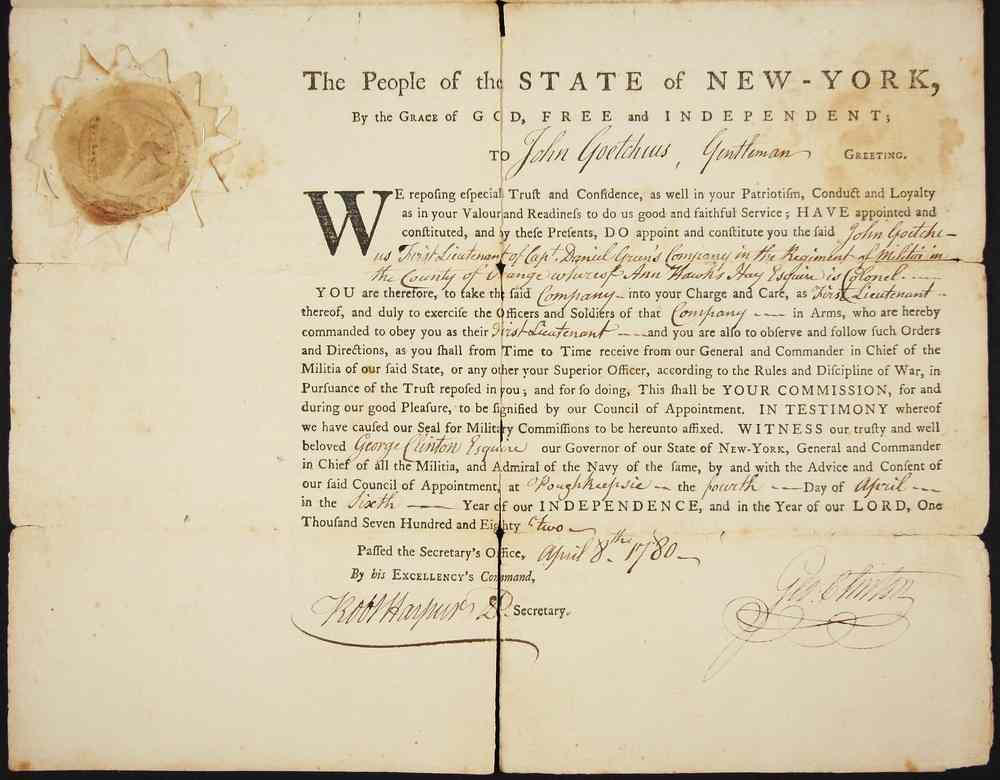 The People of the STATE of NEW-YORK,
By the GRACE of GOD, FREE and INDEPENDENT;
TO John Goetchius, Gentleman GREETING.
WE reposing eſpecial Truſt and Confidence, as well in your Patriotiſm, Conduct and Loyalty
as in your Valour and Readineſs to do us good and faithful Service; HAVE appointed and
conſtituted, and by theſe Preſents, DO appoint and conſtitute you the ſaid John Goetche-
us First Lieutenant of Capt. Daniel Green's Company in the Regiment of Militia in
the County of Orange whereof Ann Hawks Hay Esquire is Colonel.
YOU are therefore, to take the ſaid Company into your Charge and Care, as First Lieutenant
thereof, and duly to exerciſe the Officers and Soldiers of that Company in Arms, who are hereby
commanded to obey you as their First Lieutenant and you are alſo to obſerve and follow ſuch Orders
and Directions, as you ſhall from Time to Time receive from our General and Commander in Chief of the
Militia of our ſaid State, or any other your Superior Officer, according to the Rules and Diſcipline of War, in
Purſuance of the Truſt repoſed in you; and for ſo doing, This ſhall be YOUR COMMISSION, for and
during our good Pleaſure, to be ſignified by our Council of Appointment. IN TESTIMONY whereof
we have cauſed our Seal for Military Commiſſions to be hereunto affixed. WITNESS our truſty and well
beloved George Clinton Esquire our Governor of our State of NEW-YORK, General and Commander
in Chief of all the Militia, and Admiral of the Navy of the ſame, by and with the Advice and Conſent of
our ſaid Council of Appointment, at Poughkeepsie the fourth Day of April
in the Sixth Year of our INDEPENDENCE, and in the Year of our LORD, One
Thouſand Seven Hundred and Eighty two
Paſſed the Secretary's Office, April 8th 1780
By his EXCELLENCY'S Command,
Robt Harpur D. Secretary.
Geo. Clinton